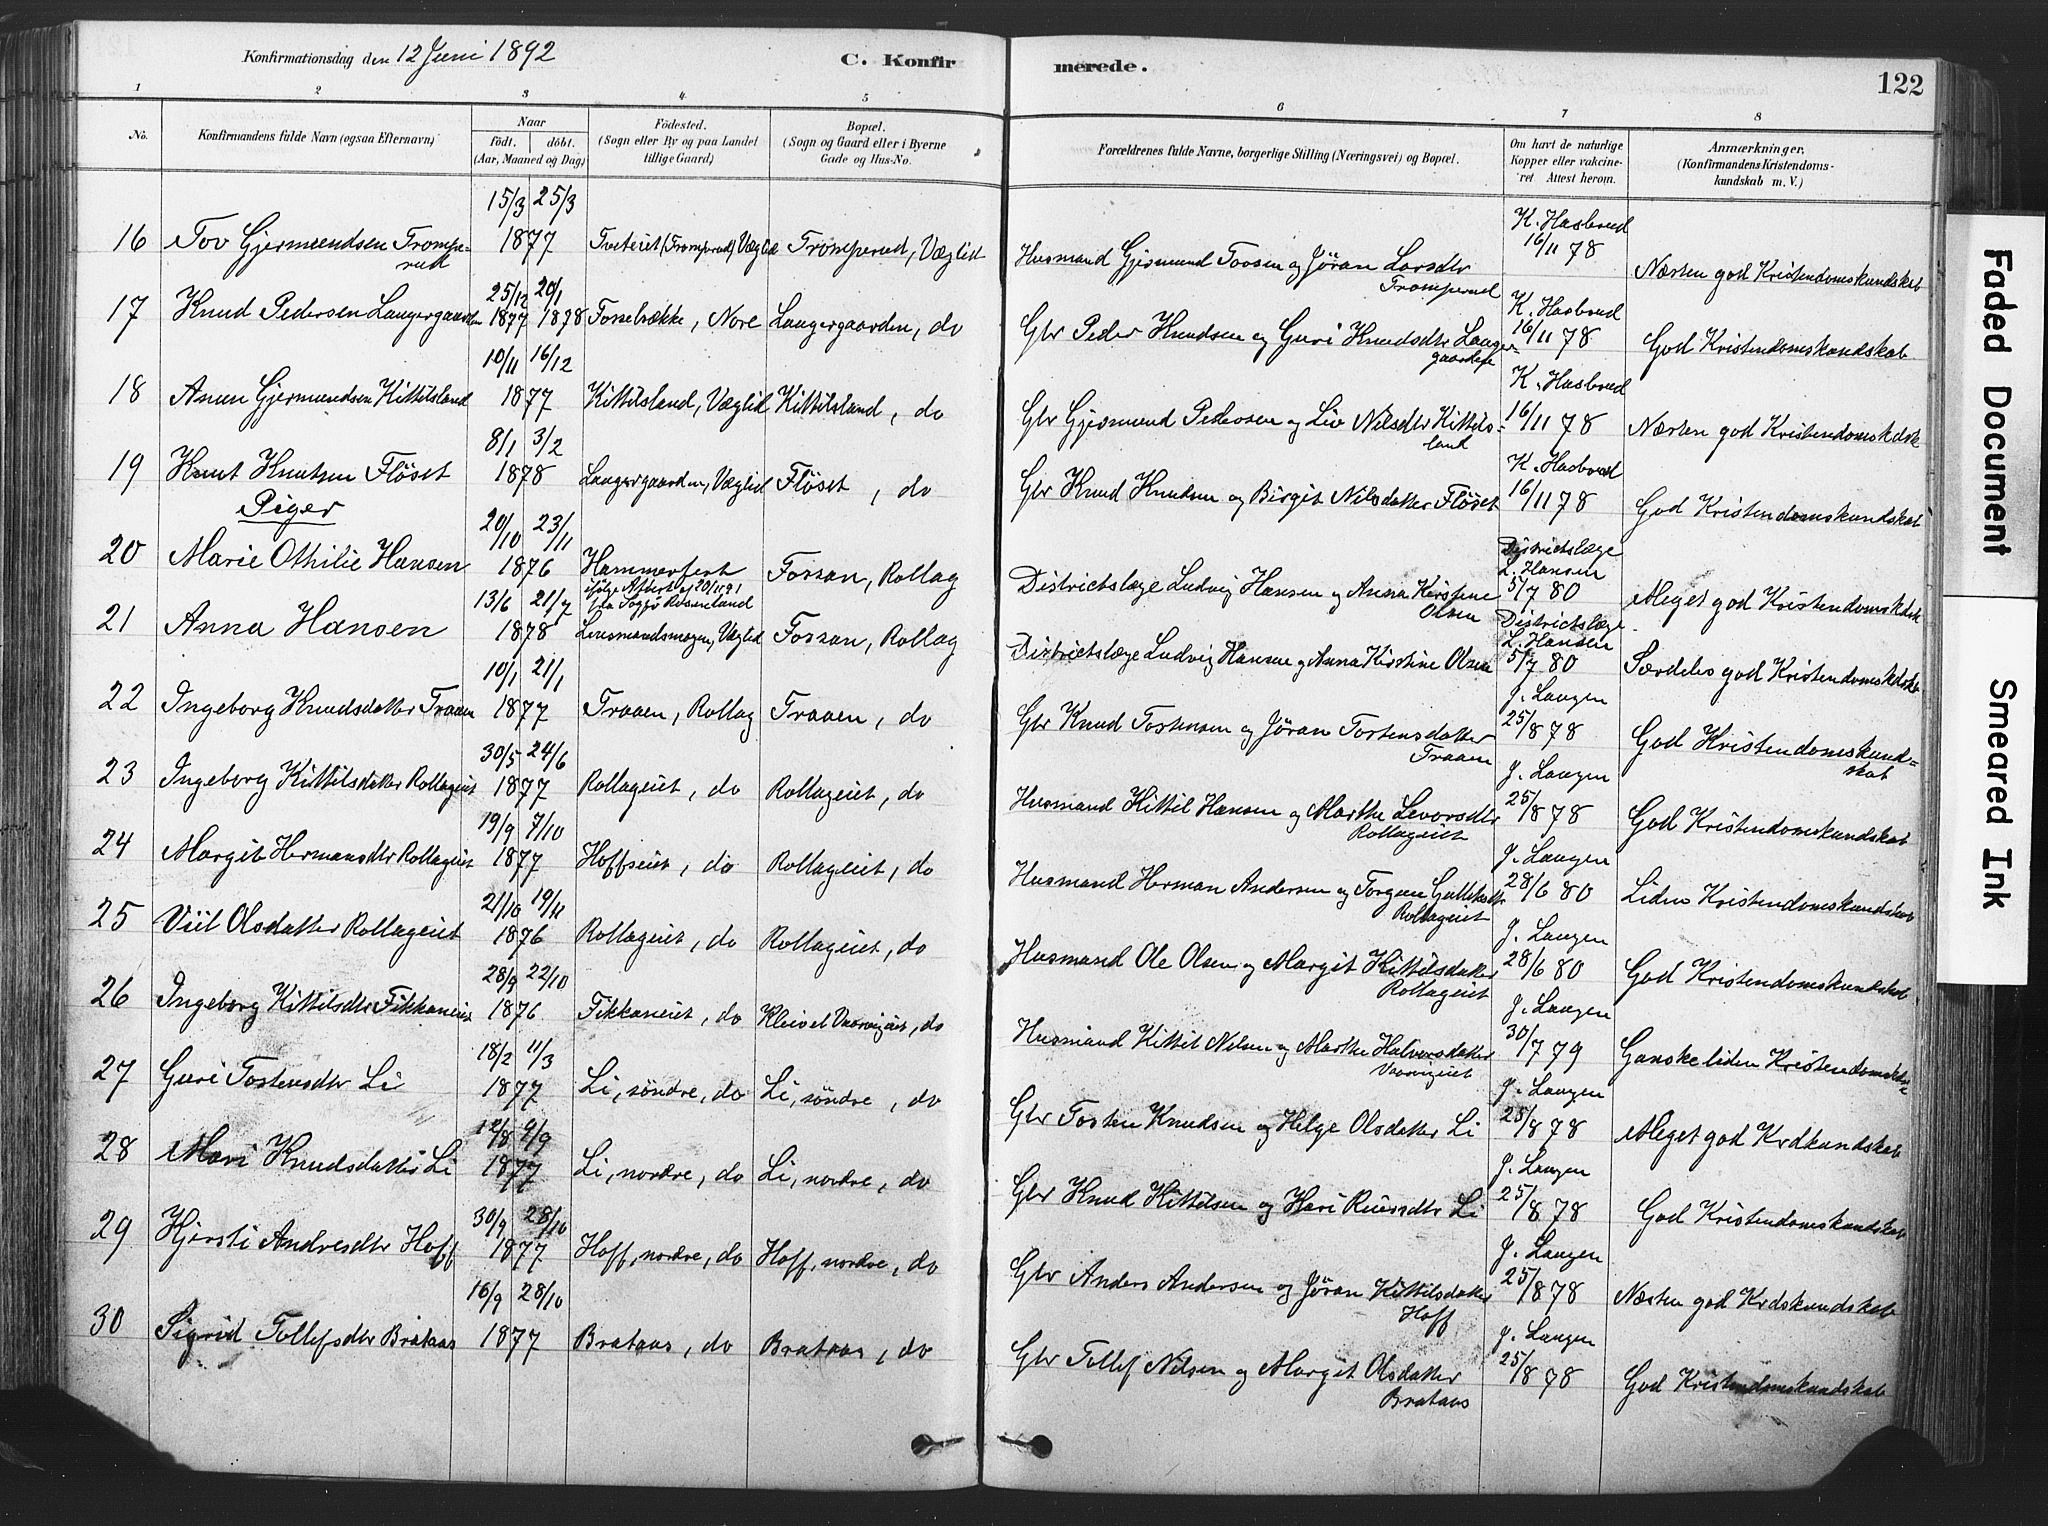 Konfirmationsdag den 12 Juni 1892
C. Konfirmerede.
122
1 2 3 4 5 6 7 8
No.
Konfirmandens fulde Navn (ogsaa Efternavn)
Naar
födt. döbt.
(Aar, Maaned og Dag)
Födested.
(Sogn eller By og paa Landet
tillige Gaard)
Bopæl.
(Sogn og Gaard eller i Byerne
Gade og Hus-No.
Forældrenes fulde Navne, borgerlige Stilling (Næringsvei) og Bopæl.
Om havt de naturlige
Kopper eller vakcine-
ret Attest herom.
Anmærkninger,
(Konfirmandens Kristendoms-
kundskab m. V.)
15/3 25/3 K. Hasbrud
16 Tov Gjermundsen Trompe- 1877 Tveteiet (Tromperud) Væglid Tromperud, Væglid Husmand Gjermund Tovsen og Jöran Larsdtr 16/11 78 Næsten god Kristendomskundskab
rud Tromperud
25/12 20/1 K. Hasbrud
17 Knud Pedersen Langergaarden 1877 1878 Fossebrække, Nore Langergaarden, do Gbr Peder Knudsen og Guri Knudsdtr Langer- 16/11 78 God Kristendomskundskab
gaarden
10/11 16/12 K. Hasbrud
18 Anun Gjermundsen Kittilsland 1877 Kittilsland, Væglid Kittilsland, do Gbr Gjermund Pedersen og Liv Nilsdtr Kittils- 16/11 78 Næsten god Kristendomskdsk
land
8/1 3/2 K. Hasbrud
19 Knut Knutsen Flöset 1878 Langergaarden, Væglid Flöset, do Gbr Knud Knudsen og Birgit Nilsdatter Flöset 16/11 78 God Kristendomskundskab
Piger
20/10 23/11 Districtslæge
L. Hansen
20 Marie Othilie Hansen 1876 Hammerfest Fossan, Rollag Districtslæge Ludvig Hansen og Anna Kirstine 5/7 80 Meget god Kristendomskdsk
ifölge Attest af 20/11 91
fra Sogpr Rosenland
Olsen
13/6 21/7 Districtslæge
L. Hansen
21 Anna Hansen 1878 Lensmandsmogen, Væglid Fossan, Rollag Districtslæge Ludvig Hansen og Anna Kirstine Olsen 5/7 80 Særdeles god Kristendomskdskab
10/1 21/1 J. Laugen
22 Ingeborg Knudsdatter Traaen 1877 Traaen, Rollag Traaen, do Gbr Knud Tostensen og Jöran Tostensdatter 25/8 78 God Kristendomskund-
Traaen skab
30/5 24/6 J. Laugen
23 Ingeborg Kittilsdatter Rollageiet 1877 Rollageiet, do Rollageiet, do Husmand Kittil Hansen og Marthe Levorsdtr 25/8 78 God Kristendomskundskab
Rollageiet
19/9 7/10 J. Laugen
24 Margit Hermansdtr Rollageiet 1877 Hoffseiet, do Rollageiet, do Husmand Herman Andersen og Torgun Gulliksdtr 28/6 80 Liden Kristendomskundskab
Rollageiet
21/10 19/11 J. Laugen
25 Viil Olsdatter Rollageiet 1876 Rollageiet, do Rollageiet, do Husmand Ole Olsen og Margit Kittilsdatter 28/6 80 God Kristendomskundskab
Rollageiet
28/9 22/10 J. Laugen
26 Ingeborg Kittilsdtr Fikkaneiet 1876 Fikkaneiet, do Kleivel Vaarvigeiet, do Husmand Kittil Nilsen og Marthe Halvorsdatter 30/7 79 Ganske liden Kristendomskdsk
Vaarvigeiet
18/2 11/3 J. Laugen
27 Guri Tostensdtr Li 1877 Li, söndre, do Li, söndre, do Gbr Tosten Knudsen og Helge Olsdatter Li 25/8 78 Meget god Krdkundskab
12/8 9/9 J. Laugen
28 Mari Knudsdatter Li 1877 Li, nordre, do Li, nordre, do Gbr Knud Kittilsen og Kari Ruersdtr Li 25/8 78 God Kristendomskundskab
30/9 28/10 J. Laugen
29 Kjersti Andresdtr Hoff 1877 Hoff, nordre, do Hoff, nordre, do Gbr Anders Andersen og Jöran Kittilsdatter 25/8 78 Næsten god Krdskundskab
Hoff
16/9 28/10 J. Laugen
30 Sigrid Tollefsdtr Brataas 1877 Brataas, do Brataas, do Gbr Tollef Nilsen og Margit Olsdatter 25/8 78 God Kristendomskundskab
Brataas
Faded Document
Smeared Ink